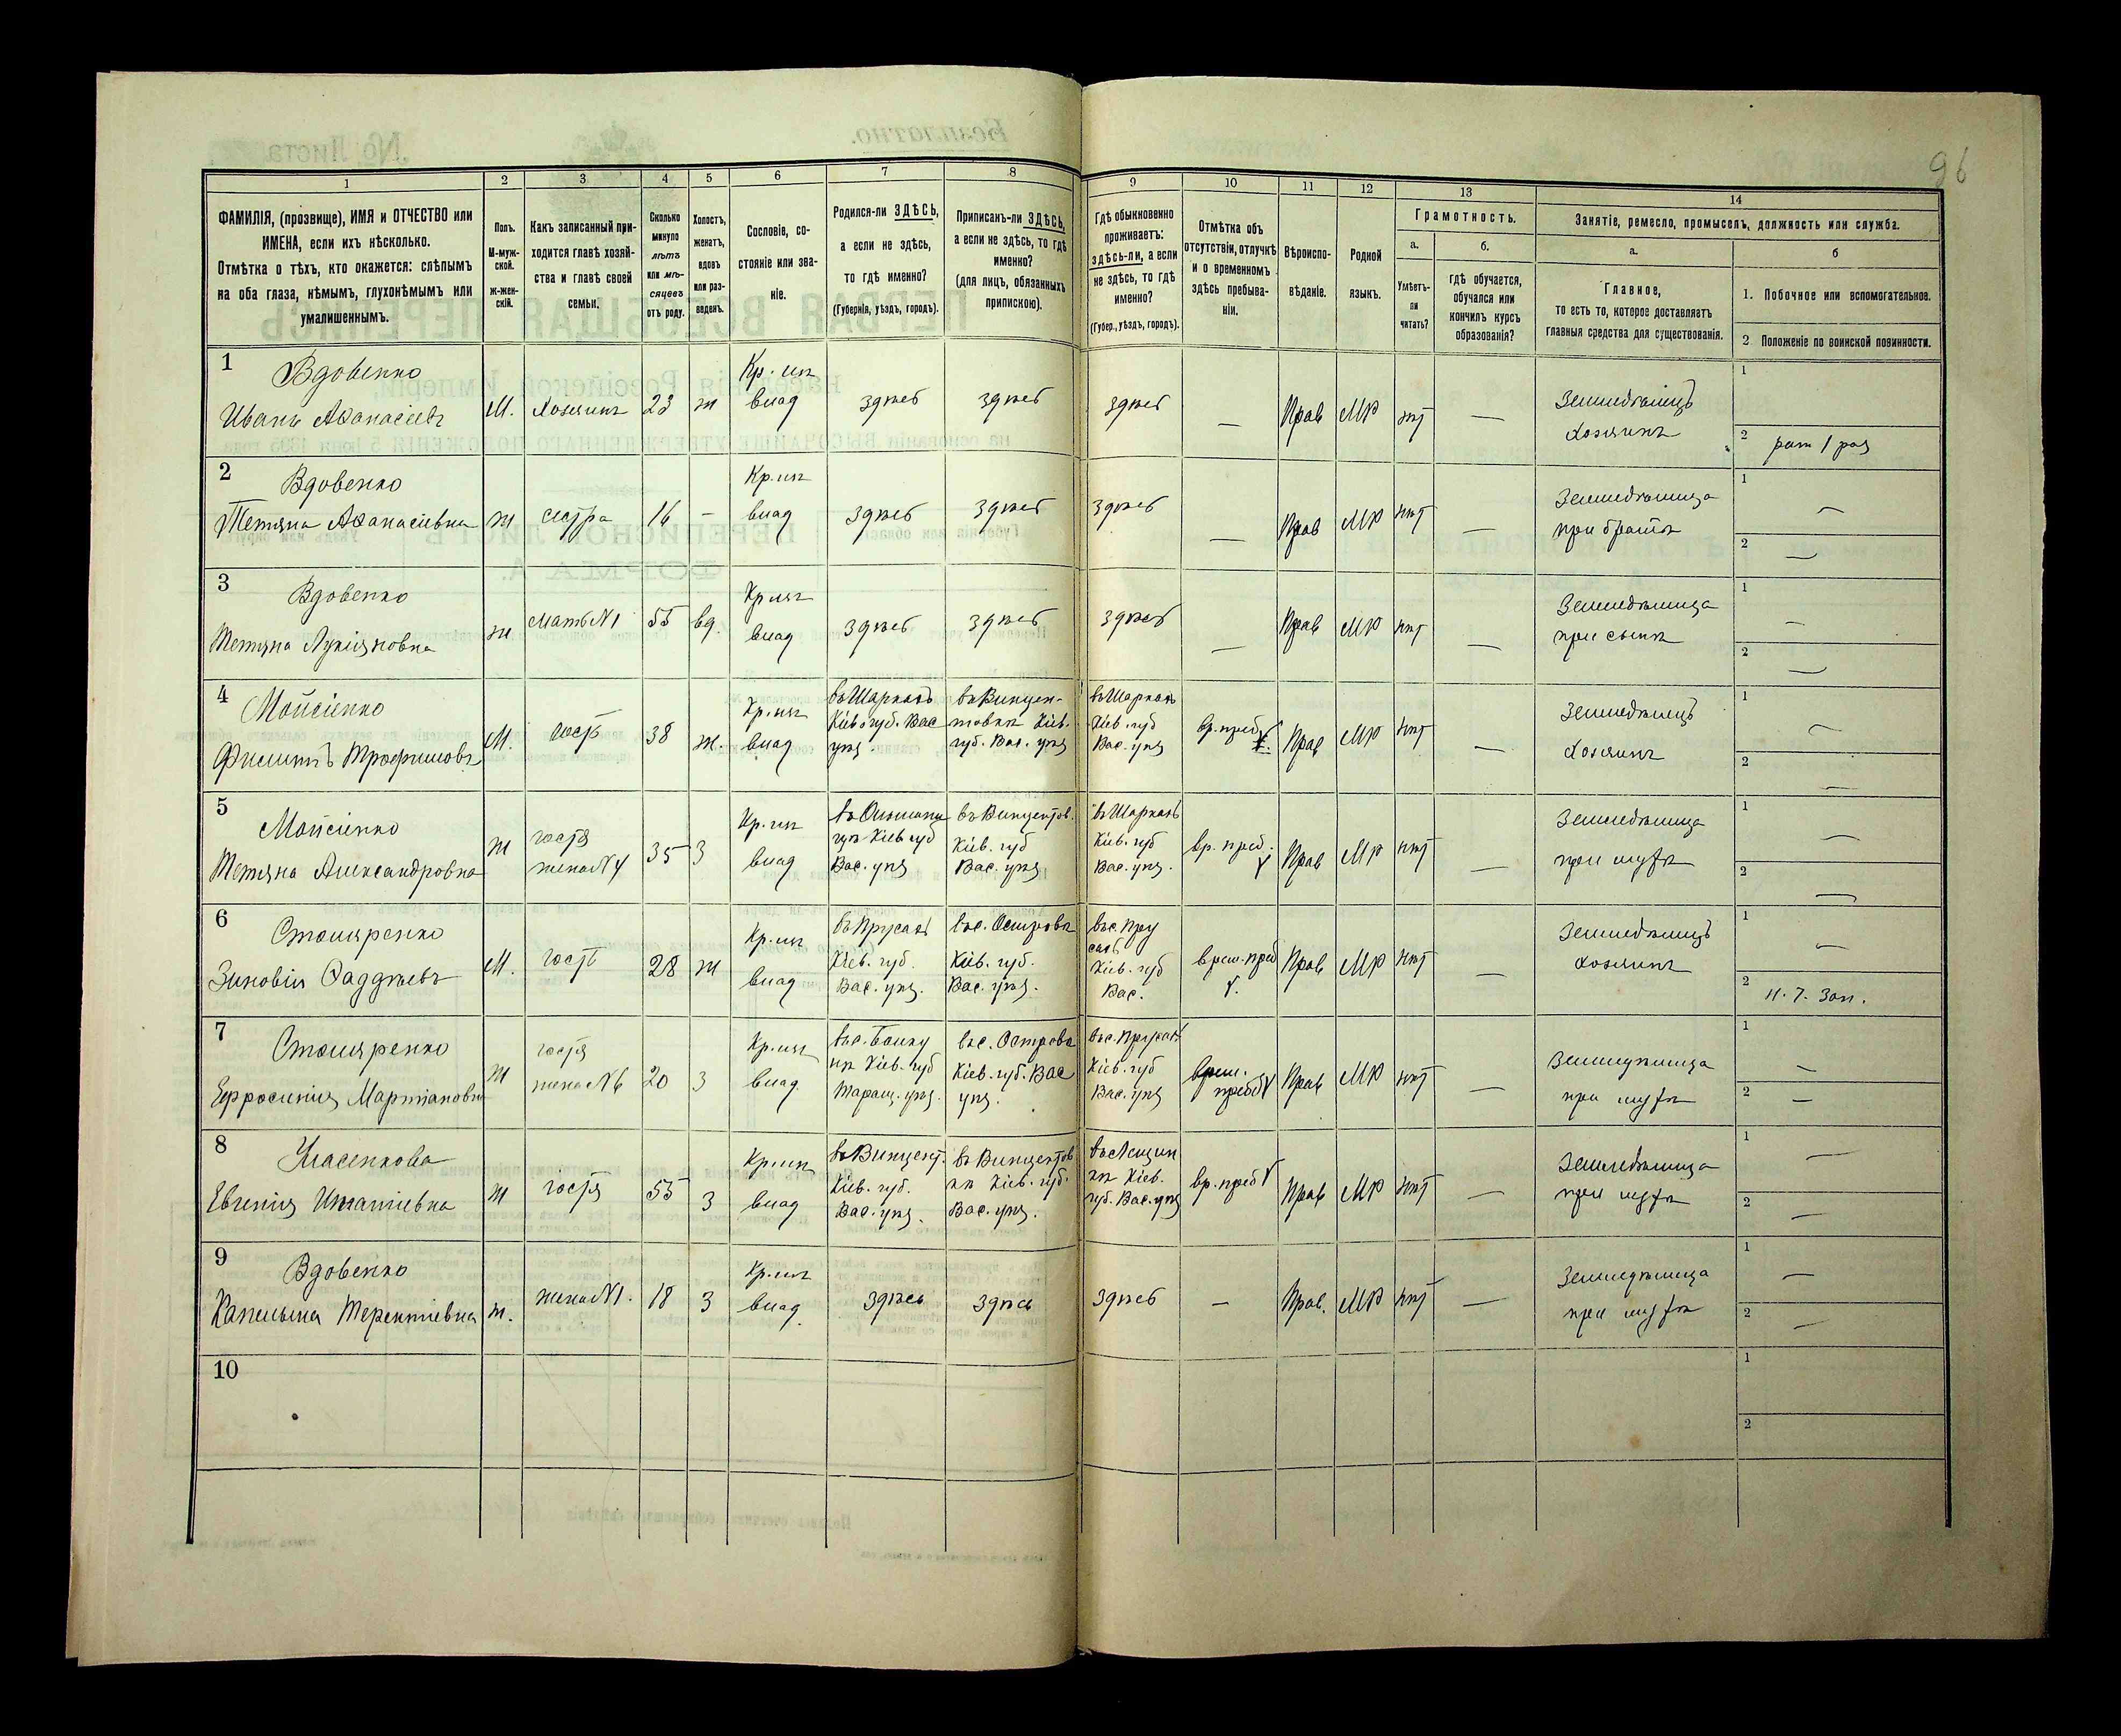 96
1 2 3 4 5 6 7 8 9 10 11 12 13 14
ФАМИЛІЯ, (прозвище), ИМЯ и ОТЧЕСТВО или
ИМЕНА, если ихъ нѣсколько.
Отмѣтка о тѣхъ, кто окажется: слѣпымъ
на оба глаза, нѣмымъ, глухонѣмымъ или
умалишеннымъ.
Полъ.
М-муж-
ской.
ж-жен-
скій.
Какъ записанный при-
ходится главѣ хозяй-
ства и главѣ своей
семьи.
Сколько
минуло
лѣтъ
или мѣ-
сяцевъ
отъ роду.
Холостъ,
женатъ,
вдовъ
или раз-
веденъ.
Сословіе, со-
стояніе или зва-
ніе.
Родился-ли ЗДѢСЬ,
а если не здѣсь,
то гдѣ именно?
(Губернія, уѣздъ, городъ).
Приписанъ-ли ЗДѢСЬ,
а если не здѣсь, то гдѣ
именно?
(для лицъ, обязанныхъ
припискою).
Гдѣ обыкновенно
проживаетъ:
здѣсь-ли, а если
не здѣсь, то гдѣ
именно?
(Губер., уѣздъ, городъ).
Отмѣтка объ
отсутствіи, отлучкѣ
и о временномъ
здѣсь пребыва-
ніи.
Вѣроиспо-
вѣданіе.
Родной
языкъ.
Грамотность.
а.
Умѣетъ-
ли
читать?
б.
гдѣ обучается,
обучался или
кончилъ курсъ
образованія?
Занятіе, ремесло, промыселъ, должность или служба.
а.
Главное,
то есть то, которое доставляетъ
главныя средства для существованія.
б
1. Побочное или вспомогательное.
2 Положеніе по воинской повинности.
1
Вдовенко
Иванъ Афанасіевъ
М.
хозяинъ
23
ж
Кр. изъ
влад
здѣсь
здѣсь
здѣсь
—
Прав
МР
нѣт
—
Земледѣлецъ
хозяинъ
1
2 рат 1 раз
2
Вдовенко
Тетяна Афанасіевна
ж
сестра
16
—
Кр. изъ
влад
здѣсь
здѣсь
здѣсь
—
Прав
МР
нѣт
—
Земледѣлица
при братѣ
1 —
2 —
3
Вдовенко
Тетяна Лукіяновна
ж
мать N1
55
вд.
Кр изъ
влад
здѣсь
здѣсь
здѣсь
—
Прав
МР
нѣт
—
Земледѣлица
при сынѣ
1 —
2 —
4
Мойсіенко
Филиппъ Трофимовъ
М.
гость
38
ж.
Кр. изъ
влад
въ Шаркахъ
Кіев. губ. Вас
уѣз.
въ Винцен-
товкѣ Кіев.
губ. Вас. уѣз
въ Шаркахъ
Кіев. губ
Вас. уѣз
вр. преб
Прав
МР
нѣт
—
Земледѣлецъ
хозяинъ
1 —
2 —
5
Мойсіенко
Тетяна Александровна
ж
гостя
жена N4
35
З
Кр. изъ
влад
Кіев губ
Вас. уѣз
въ Винцентов.
Кіев. губ
Вас. уѣз
въ Шаркахъ
Кіев. губ
Вас. уѣз.
вр. преб.
Прав
МР
нѣт
—
Земледѣлица
при мужѣ
1 —
2 —
6
Столяренко
Зиновій Фаддѣевъ
М.
гость
28
ж
Кр. изъ
влад
въ Прусахъ
Кіев. губ.
Вас. уѣз.
въ с. Островѣ
Кіев. губ.
Вас. уѣз.
въ с. Пру
сахъ
Кіев. губ
Вас.
врем. преб
Прав
МР
нѣт
—
Земледѣлецъ
хозяинъ
1 —
2 н. 7. Зап.
7
Столяренко
Ефросинія Мартіановна
ж
гостя
жена N6
20
З
Кр. изъ
влад
Кіев. губ
Таращ. уѣз.
въ с. Острова
Кіев. губ. Вас
уѣз.
въ с. Прусахъ
Кіев. губ
Вас. уѣз
врем.
преб
Прав
МР
нѣт
—
Земледѣлица
при мужѣ
1 —
2 —
8
Уласенкова
Евгенія Игнатіевна
ж
гостя
55
З
Кр. изъ
влад
въ Винцент.
Кіев. губ.
Вас. уѣз.
въ Винцентов
кѣ Кіев. губ.
Вас. уѣз.
Кіев.
губ. Вас. уѣз
вр. преб
Прав
МР
нѣт
—
Земледѣлица
при мужѣ
1 —
2 —
9
Вдовенко
Терентіевна
ж.
жена N1.
18
З
Кр. изъ
влад.
здѣсь
здѣсь
здѣсь
—
Прав.
МР
нѣт
—
Земледѣлица
при мужѣ
1 —
2 —
10
1
2